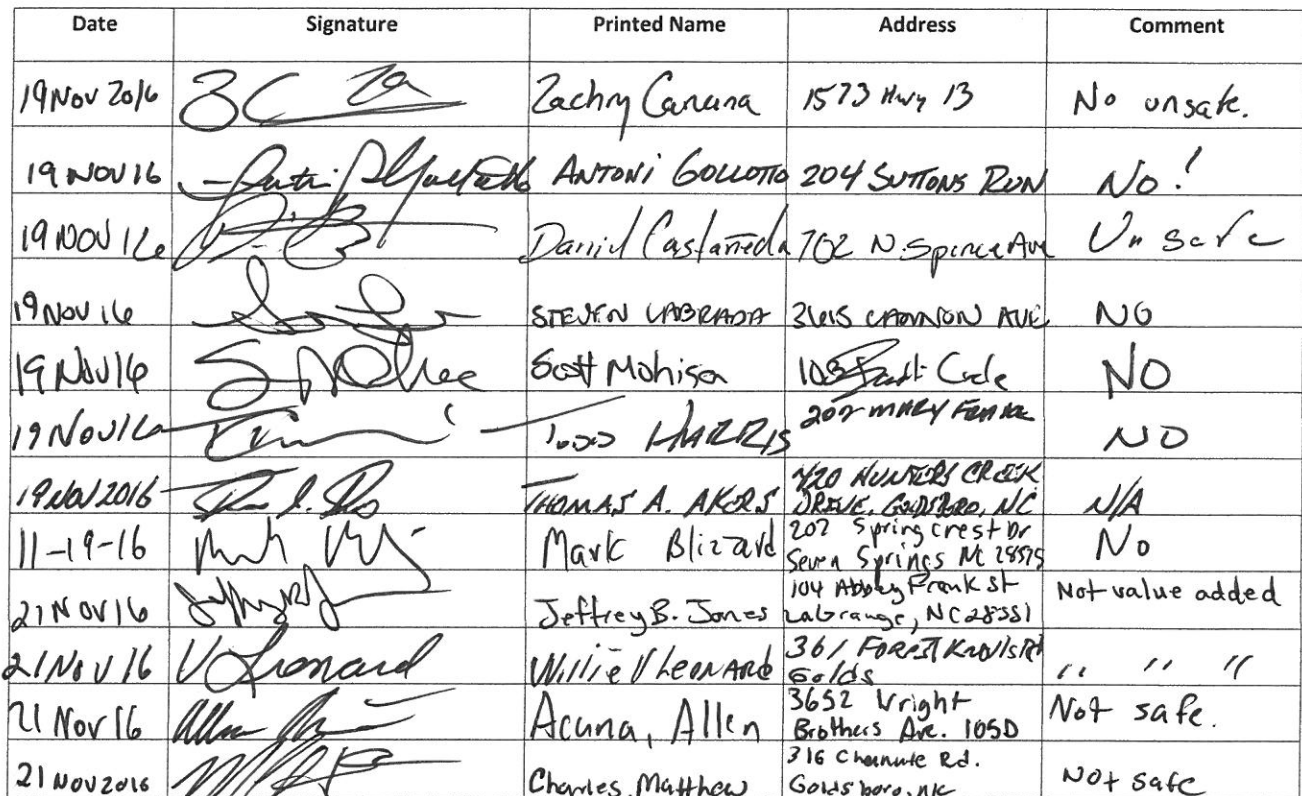 Date Signature Printed Name Address Comment
19 Nov 2016 Zachry Caruana 1573 Hwy 13 No unsafe.
19 NOV 16 ANTONI GOLLOTTO 204 SUTTONS RUN No!
19 NOV 16 Daniel Castañeda 702 N. Spence Ave Unsafe
19 NOV 16 STEVEN LABRADA 3615 CANNON AVE NO
19 NOV 16 Scott Mohison 103 NO
19 NOV 16 TODD HARRIS 207 MARY FRANK NO
19 NOV 2016 THOMAS A. AKERS 420 HUNTERS CREEK
DRIVE, GOLDSBORO, NC N/A
11-19-16 Mark Blizzard 202 Springcrest Dr
Seven Springs NC 28575 No
21 NOV 16 Jeffrey B. Jones 104 Abbey Frank St
LaGrange, NC 28551 Not value added
21 NOV 16 V Leonard Willie V LEONARD 361 FOREST Knolls Rd
Golds " " "
21 Nov 16 Acuna, Allen 3652 Wright
Brothers Ave. 105D Not safe.
21 NOV 2016 Charles, Matthew 316 Chanute Rd.
Goldsboro, NC Not safe